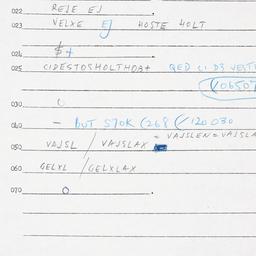 022 REJE EJ
023 VELXE EJ HOSTE HOLT
024 $+
025 CIDESTOSHOLTHOB+ QED CI D3 VESTE
(106507
030
040 - BUT STOK (268 (/120 030
= VAJSLEN = VAJSLA
050 VAJSL / VAJSLAX
060 GELXL / GELXLAX
070 O .